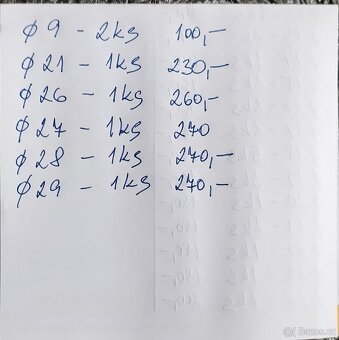 ø 9 - 2ks 100,-
ø 21 - 1ks 230,-
ø 26 - 1ks 260,-
ø 27 - 1ks 270
ø 28 - 1ks 270,-
ø 29 - 1ks 270,-
Bazos.cz